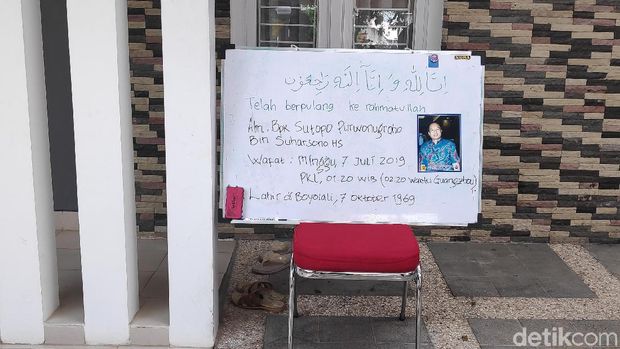 إنا لله وإنا إليه راجعون
Telah berpulang ke rahmatullah
Alm. Bpk Sutopo Purwonugroho
Bin Suharsono HS
Wafat : Minggu, 7 Juli 2019
PKL, 01.20 WIB (02.20 Waktu Guangzhou)
Lahir di Boyolali, 7 Oktober 1969
detikcom